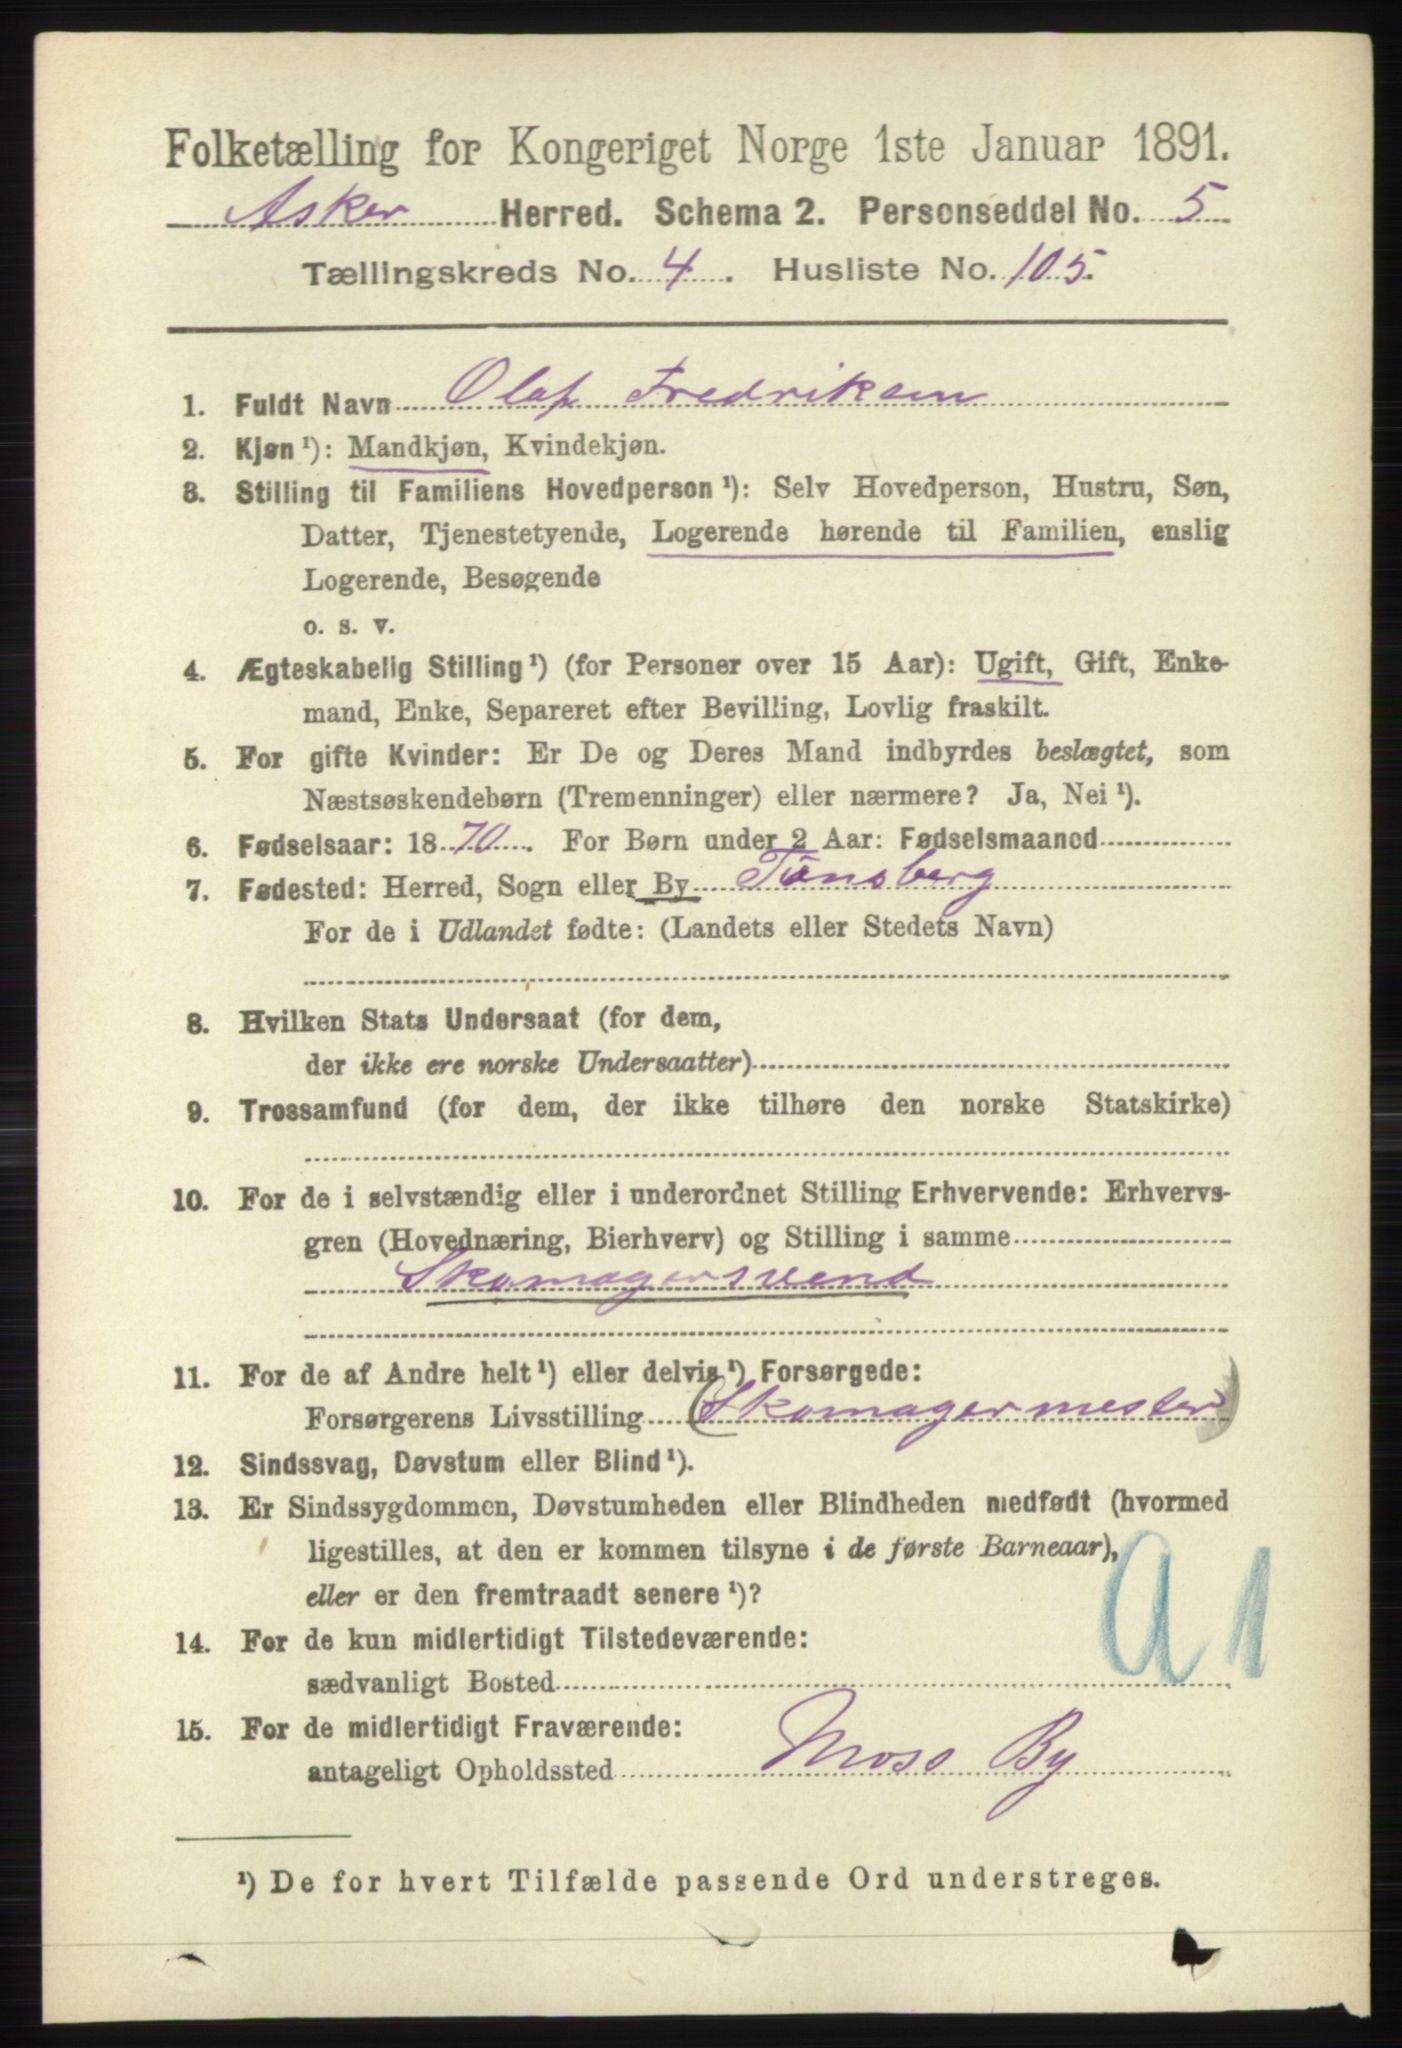 Folketælling for Kongeriget Norge 1ste Januar 1891.
Asker Herred. Schema 2. Personseddel No. 5
Tællingskreds No. 4. Husliste No. 105.
1. Fuldt Navn Olaf Fredriksen
2. Kjøn ¹): Mandkjøn, Kvindekjøn.
3. Stilling til Familiens Hovedperson ¹): Selv Hovedperson, Hustru, Søn,
Datter, Tjenestetyende, Logerende hørende til Familien, enslig
Logerende, Besøgende
o. s. v.
4. Ægteskabelig Stilling ¹) (for Personer over 15 Aar): Ugift, Gift, Enke-
mand, Enke, Separeret efter Bevilling, Lovlig fraskilt.
5. For gifte Kvinder: Er De og Deres Mand indbyrdes beslægtet, som
Næstsøskendebørn (Tremenninger) eller nærmere? Ja, Nei ¹).
6. Fødselsaar: 1870. For Børn under 2 Aar: Fødselsmaaned
7. Fødested: Herred, Sogn eller By Tönsberg
For de i Udlandet fødte: (Landets eller Stedets Navn)
8. Hvilken Stats Undersaat (for dem,
der ikke ere norske Undersaatter)
9. Trossamfund (for dem, der ikke tilhøre den norske Statskirke)
10. For de i selvstændig eller i underordnet Stilling Erhvervende: Erhvervs-
gren (Hovednæring, Bierhverv) og Stilling i samme
Skomagersvend
11. For de af Andre helt ¹) eller delvis ¹) Forsørgede:
Forsørgerens Livsstilling (Skomagermester)
12. Sindssvag, Døvstum eller Blind ¹).
13. Er Sindssygdommen, Døvstumheden eller Blindheden medfødt (hvormed
ligestilles, at den er kommen tilsyne i de første Barneaar),
eller er den fremtraadt senere ¹)?
a 1
14. For de kun midlertidigt Tilstedeværende:
sædvanligt Bosted
15. For de midlertidigt Fraværende:
antageligt Opholdssted Moss By
¹) De for hvert Tilfælde passende Ord understreges.